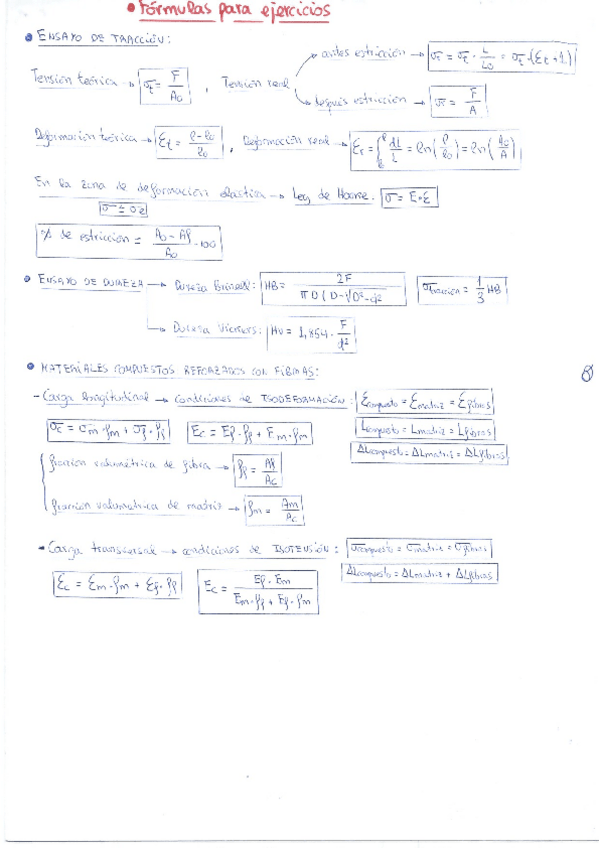 • Fórmulas para ejercicios
• ENSAYO DE TRACCIÓN:
Tensión teórica → σt = F/A0 , Tensión real → antes estricción → σr = σt · L/L0 = σt · (Et + 1)
→ después estricción → σr = F/A
Deformación teórica → Et = (l - l0)/l0 , Deformación real → Er = ∫ dl/l = ln(l/l0) = ln(A0/A)
En la zona de deformación elástica → Ley de Hooke: σ = E·ε
σ ≤ σe
% de estricción = (A0 - Af)/A0 · 100
• ENSAYO DE DUREZA → Dureza Brinell: HB = 2F/(πD(D - √D²-d²) σtracción = 1/3 HB
→ Dureza Vickers: HV = 1,854 · F/d²
• MATERIALES COMPUESTOS REFORZADOS CON FIBRAS:
- Carga longitudinal → condiciones de ISODEFORMACIÓN: Ecompuesto = Ematriz = Efibras
σc = σm · fm + σf · ff Ec = Ef · ff + Em · fm Lcompuesto = Lmatriz = Lfibras
ΔLcompuesto = ΔLmatriz = ΔLfibras
fracción volumétrica de fibra → ff = Af/Ac
fracción volumétrica de matriz → fm = Am/Ac
- Carga transversal → condiciones de ISOTENSIÓN: σcompuesto = σmatriz = σfibras
ΔLcompuesto = ΔLmatriz + ΔLfibras
Ec = Em · fm + Ef · ff Ec = Ef · Em/(Em · ff + Ef · fm)